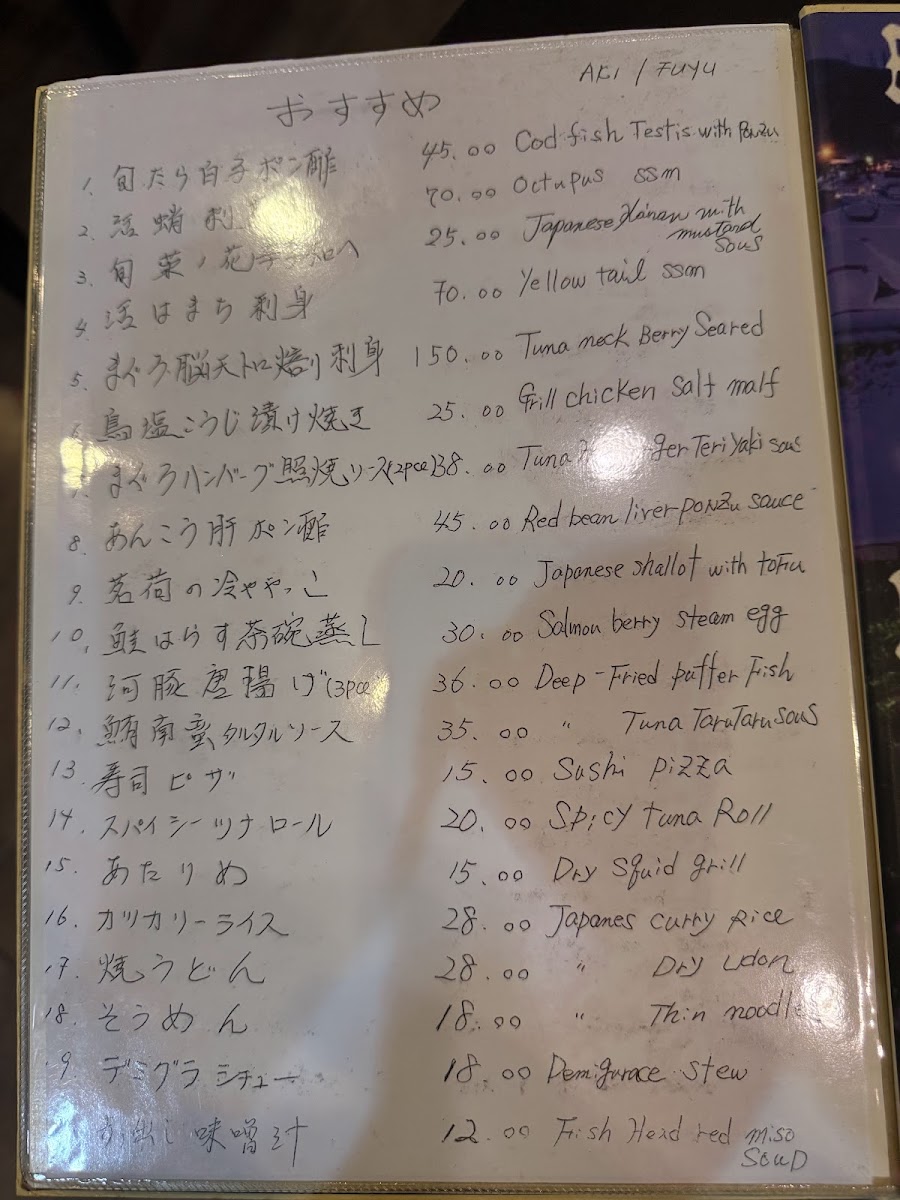 AKI / FUYU
おすすめ
1. 旬たら白子ポン酢 45.00 Cod fish Testis with PONZU
2. 活蛸刺 70.00 Octupus ssm
3. 旬菜ノ花 25.00 Japanese with mustard sous
4. 活はまち刺身 70.00 Yellow tail ssm
5. まぐろ脳天トロ焙り刺身 150.00 Tuna neck Berry Seared
鳥塩こうじ漬け焼き 25.00 Grill chicken salt malt
まぐろハンバーグ照焼ソース(2pce) 38.00 Tuna TeriYaki sous
8. あんこう肝ポン酢 45.00 Red bean liver PONZU sauce
9. 茗荷の冷ややっこ 20.00 Japanese shallot with toFu
10. 鮭はらす茶碗蒸し 30.00 Salmon berry steam egg
11. 河豚唐揚げ(3pce 36.00 Deep-Fried puffer Fish
12. 鮪南蛮タルタルソース 35.00 〃 Tuna TaruTaru sous
13. 寿司ピザ 15.00 Sushi pizza
14. スパイシーツナロール 20.00 Spicy tuna Roll
15. あたりめ 15.00 Dry squid grill
16. カツカリーライス 28.00 Japanes curry Rice
17. 焼うどん 28.00 〃 Dry Udon
18. そうめん 18.00 〃 Thin noodle
9 デミグラシチュー 18.00 Demigurace stew
出し味噌汁 12.00 Fish Head red miso soup